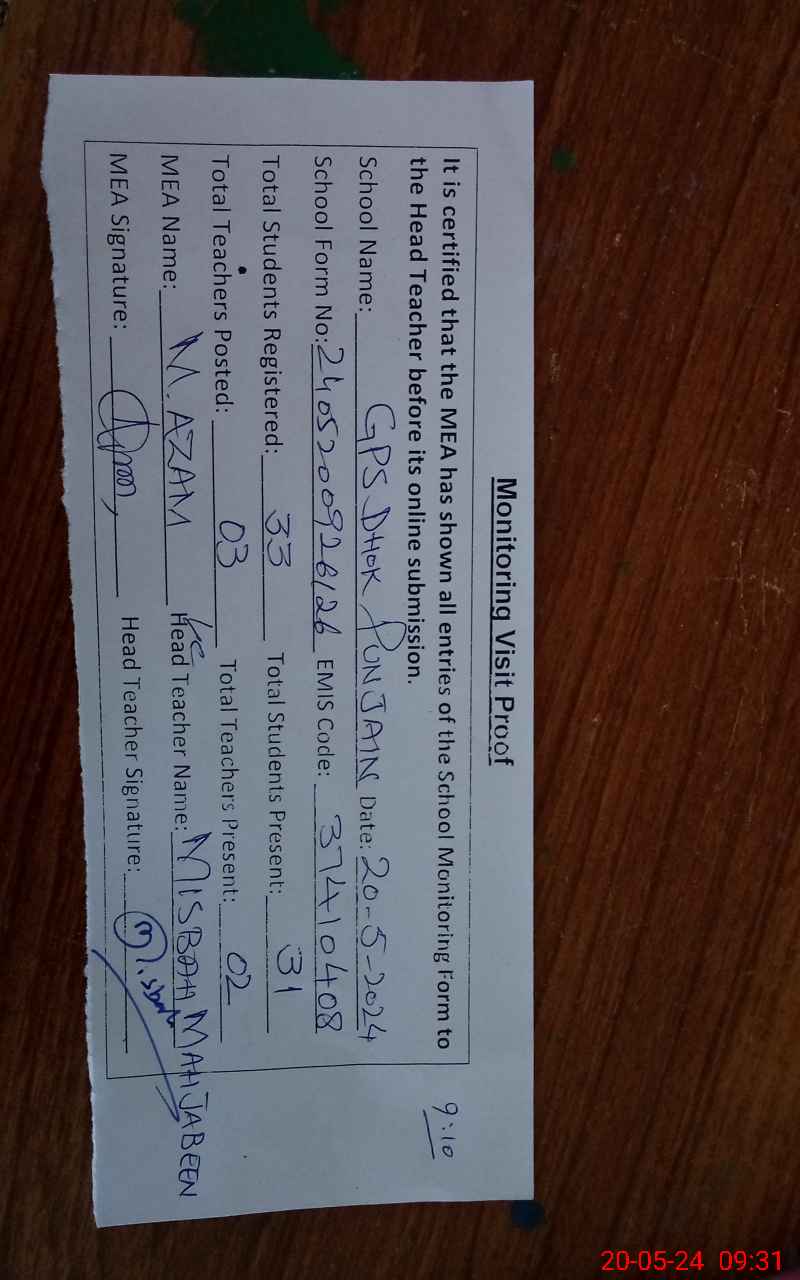 Monitoring Visit Proof
9:10
It is certified that the MEA has shown all entries of the School Monitoring Form to
the Head Teacher before its online submission.
School Name: GPS DHOK PUNJAIN Date: 20-5-2024
School Form No: 2405200926126 EMIS Code: 37410408
Total Students Registered: 33 Total Students Present: 31
Total Teachers Posted: 03 Total Teachers Present: 02
MEA Name: M. AZAM Head Teacher Name: MISBAH MAHJABEEN
MEA Signature: Head Teacher Signature: Misbah
20-05-24 09:31